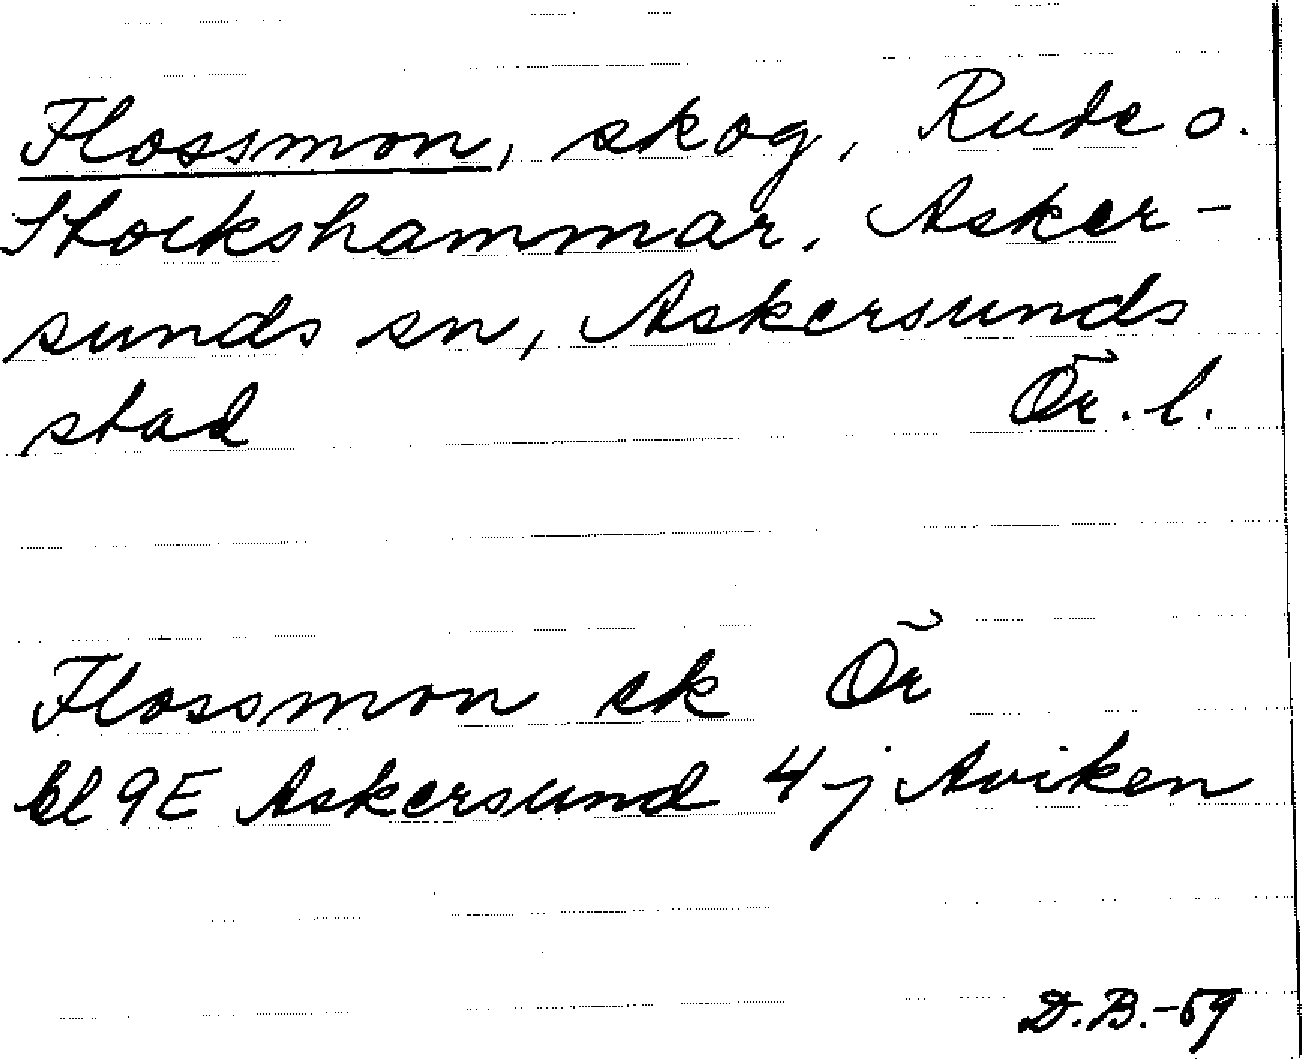 Flossmon, skog, Rude o.
Stockshammar, Asker-
sunds sn, Askersunds
stad Ör. l.
Flossmon sk Ör
bl 9E Askersund 4j Aviken
D.B.-69